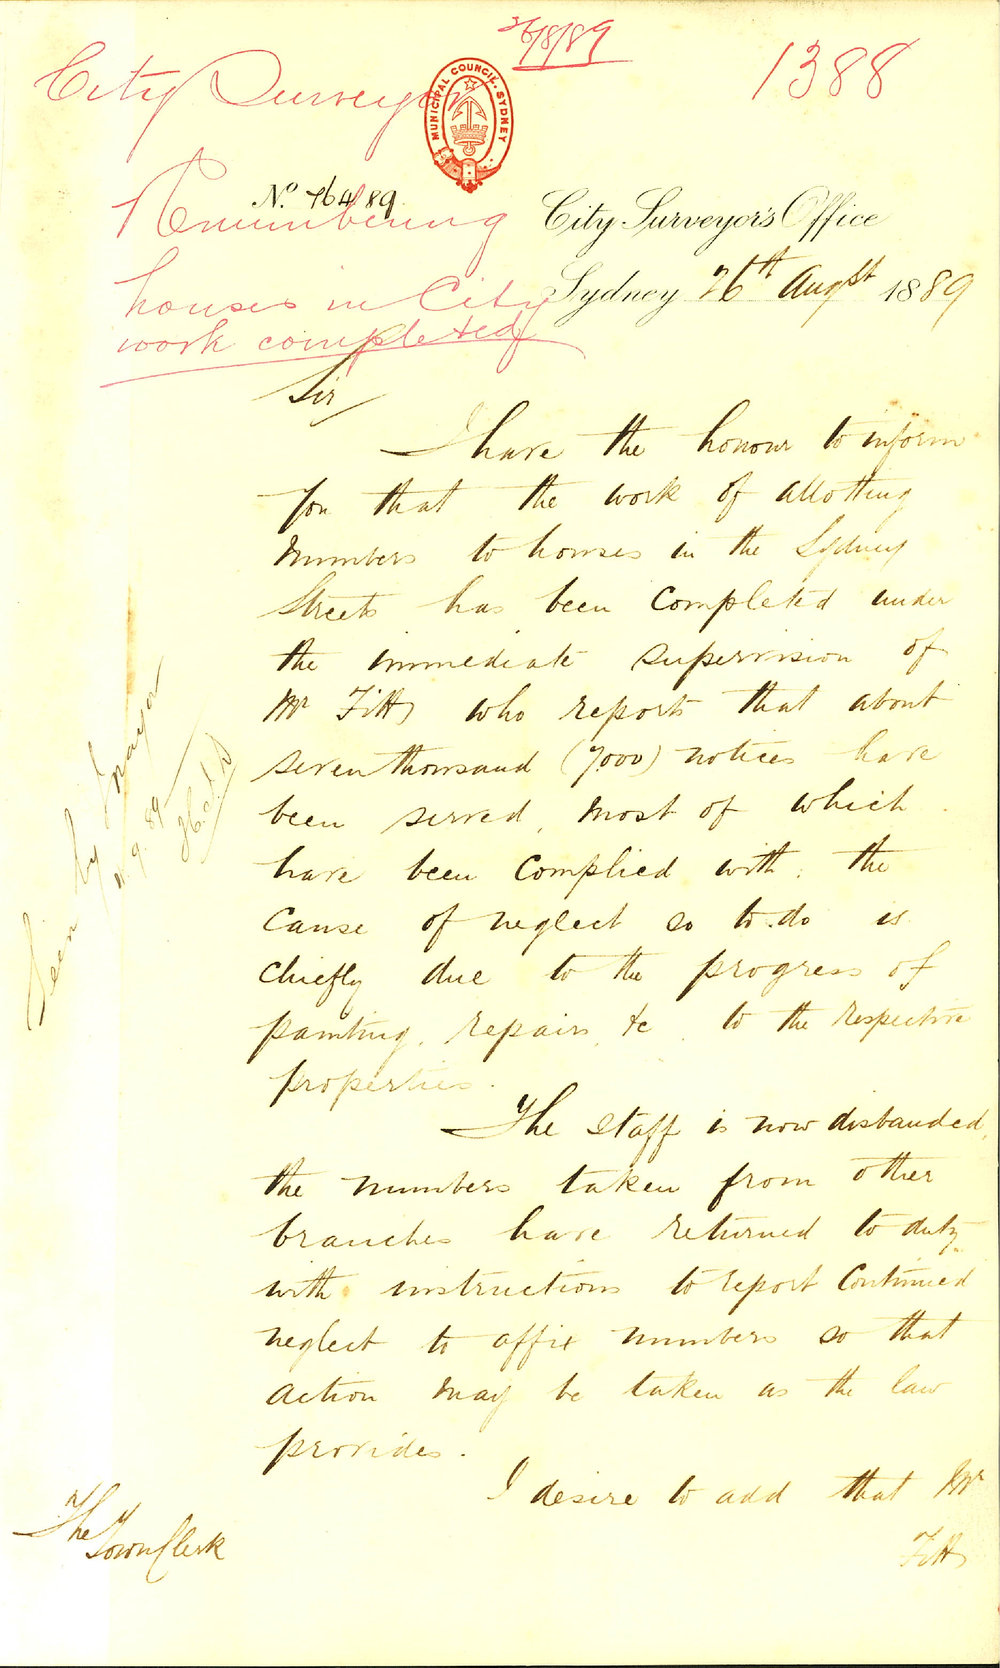 26/8/89
City Surveyor
1388
MUNICIPAL COUNCIL. SYDNEY
No. 764/89
Renumbering
houses in City
work completed
City Surveyor's Office
Sydney 26th Augst 1889
Sir
I have the honour to inform
you that the work of allotting
numbers to houses in the Sydney
Streets has been completed under
the immediate supervision of
Mr Fitts who reports that about
seven thousand (7000) notices have
been served, most of which
have been complied with, the
cause of neglect so to do is
chiefly due to the progress of
painting, repairs, &c to the respective
properties.
The staff is now disbanded,
the numbers taken from other
branches have returned to duty
with instructions to report continued
neglect to affix numbers so that
action may be taken as the law
provides.
I desire to add that Mr
Fitts
The
Town Clerk
Seen by Mayor
9.89